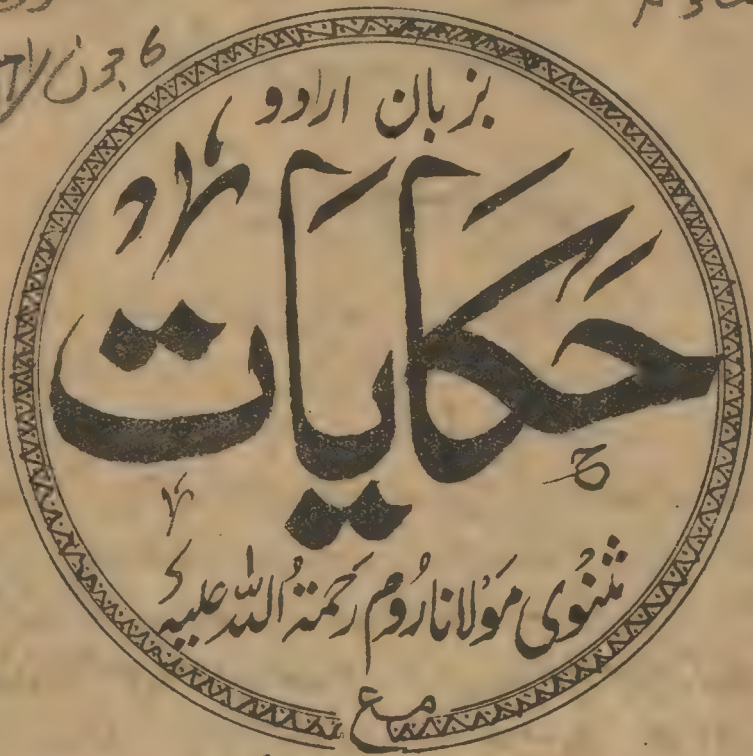 بزبان اردو
حکایات
مثنوی مولانا رُوم رحمتہُ اللہ علیہ
مع